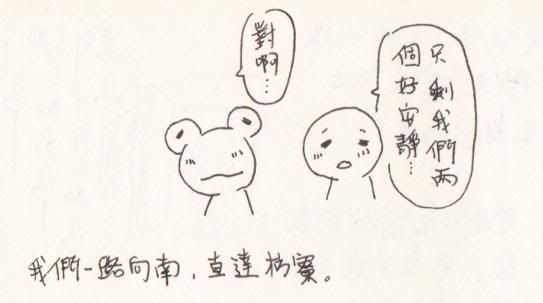 只剩我們两
個好安靜…
對啊…
我們一路向南，直達枋寮。